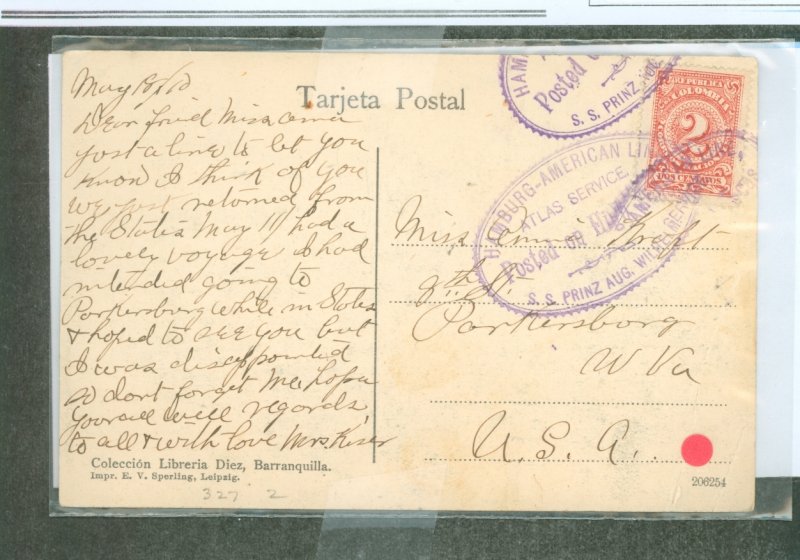 Tarjeta Postal
May 18/10
Dear friend Miss Annie
just a line to let you
know I think of you
we just returned from
the States May 11 had a
lovely voyage I had
intended going to
Parkersburg while in States
& hoped to see you but
I was disappointed
so dont forget me hope
you all well regards
to all & with love Mrs.
Colección Libreria Diez, Barranquilla.
Impr. E. V. Sperling, Leipzig.
327 2
HAM
Posted
S. S. PRINZ AUG.
REPUBLICA
COLOMBIA
2
DOS CENTAVOS
HAMBURG-AMERICAN LINE
ATLAS SERVICE.
Posted on
S. S. PRINZ AUG. WILHELM
Miss Annie
9th St.
Parkersburg
W Va
U.S.A.
206254